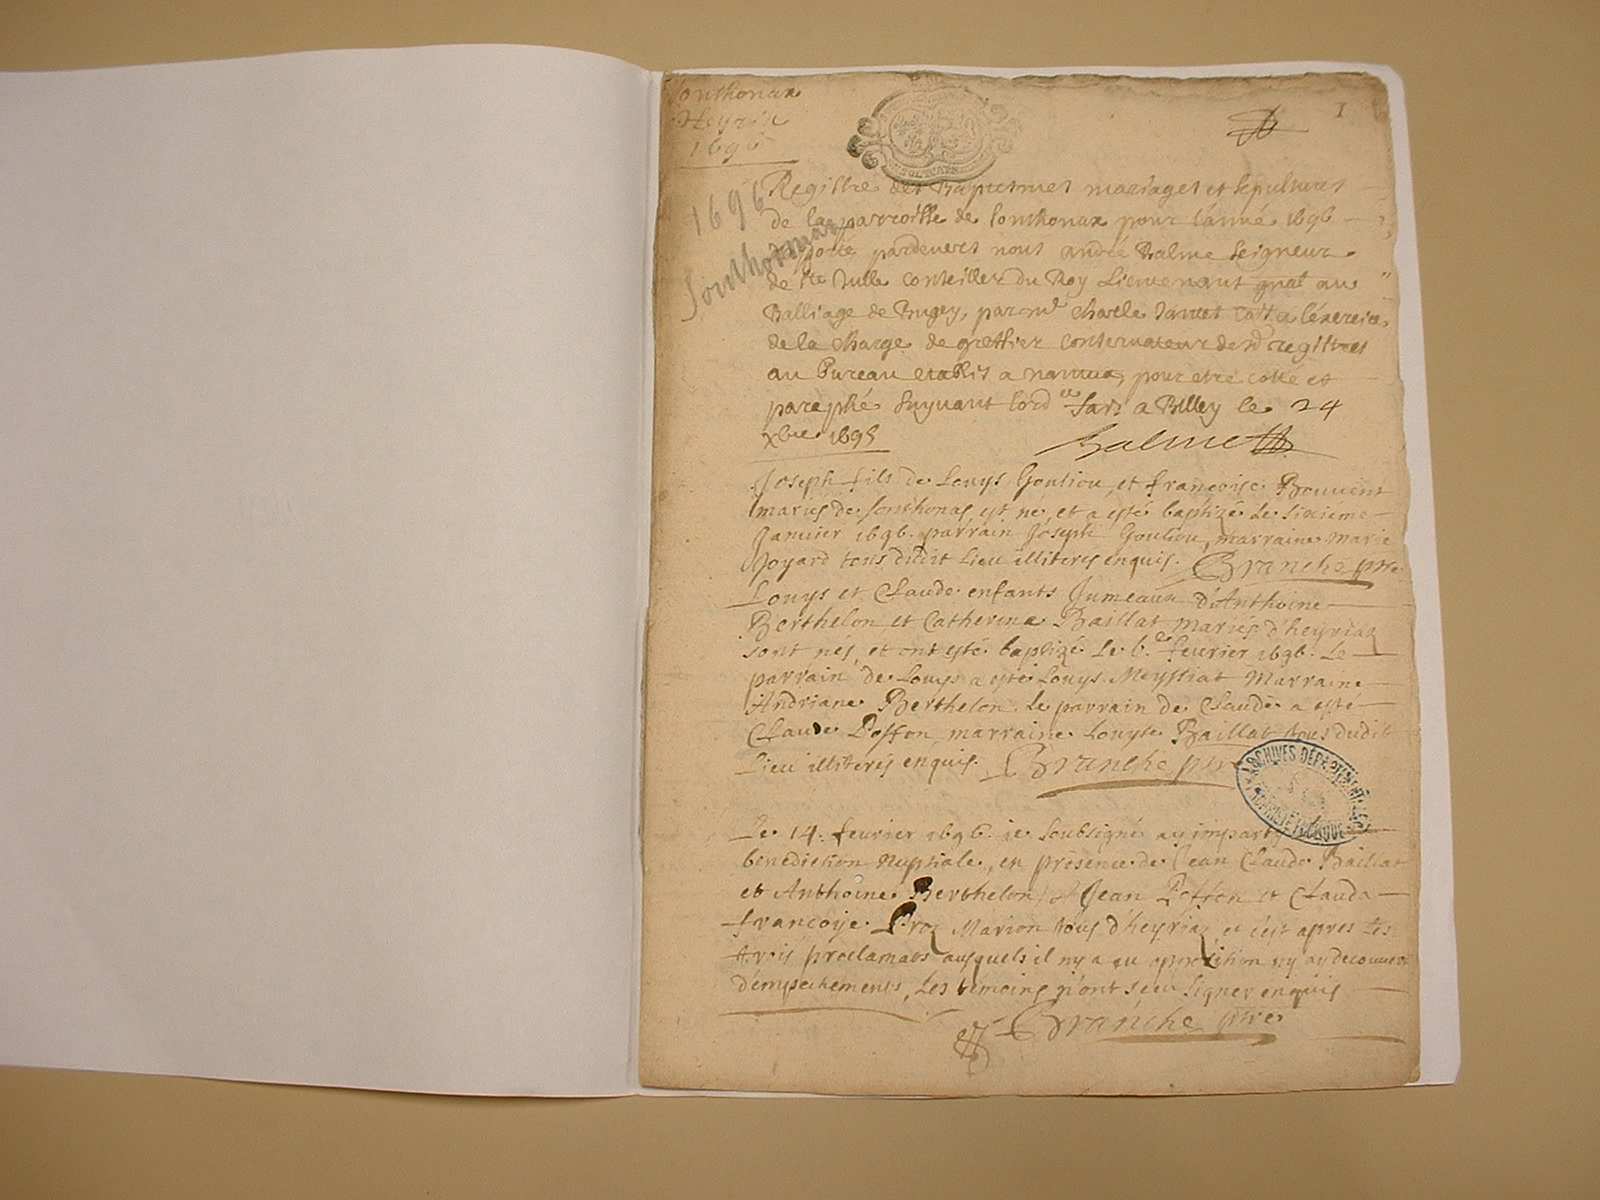 Sonthonax
Heyria
1696
1
1696
Sonthonnax
Registre des Baptesmes mariages et sepultures
de la parroisse de Sonthonax pour l'année 1696
pardevers nous André Balme Seigneur
de Ste Julle conseiller du Roy Lieutenant gnal au
Balliage de Bugey, par Charle a l'exercice
de la charge de greffier conservateur desd registres
au Bureau etablis a nantua, pour etre cotté et
paraphé suyvant lord fait a Belley le 24
xbre 1695 Balme
Joseph fils de Louys Goutiou, et francoise Bouvent
mariés de Sonthonas, est né, et a esté baptizé le sixieme
Janvier 1696. parrain Joseph Goutiou, marraine marie
Joyard tous dudit Lieu illiterés enquis. Branche ptre
Louys et Claude enfants Jumeaux d'Anthoine
Berthelon, et Catherine Baillat mariés d'heyriaz
sont nés, et ont esté baptizé le 6e fevrier 1696. Le
parrain de Louys a esté Louys Meyssiat Marraine
Andriane Berthelon. Le parrain de Claude a esté
Claude Poffon, marraine Louyse Baillat tous dudit
Lieu illiterés enquis. Branche ptre
ARCHIVES DÉPARTEMENT
Le 14. fevrier 1696. ie soubsigné ay imparty
benediction Nuptiale, en présence de Jean Claude Baillat
et Anthoine Berthelon, a Jean Poffon et Clauda
francoise Proz Marion tous d'heyriaz, et c'est apres les
trois proclamats ausquels il n'y a eu opposition ny ay decouvert
d'empechements, Les témoins n'ont sceu signer enquis
Branche ptre